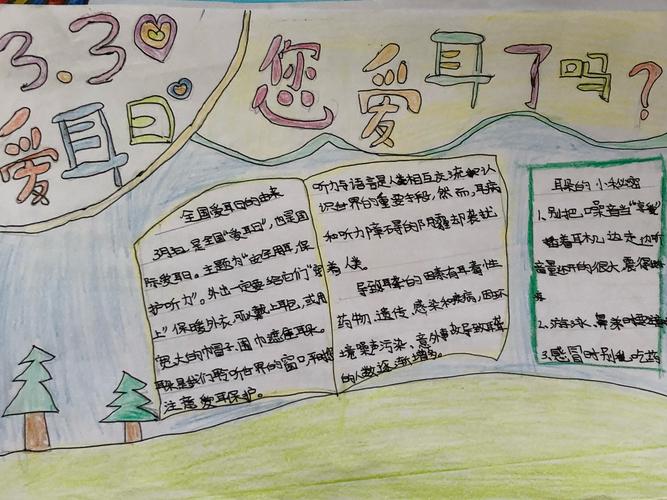 3.3
爱耳日
您爱耳了吗?
全国爱耳日的由来
3月3日是全国"爱耳日",也是国
际爱耳日。主题为"安全用耳,保
护听力"。外出一定要给它们"穿
上"保暖外衣,可以戴上耳包,或用
宽大的帽子、围巾遮住耳朵。
耳朵是我们聆听世界的窗口,
注意爱耳保护。
听力与语言是人类相互交流和认
识世界的重要手段,然而,耳病
和听力障碍的阴霾却袭扰
着人类。
导致耳聋的因素有耳毒性
药物、遗传、感染和疾病,因环
境噪声污染、意外事故导致耳聋
的人数逐渐增多。
耳朵的小秘密
1.别把噪音当"享受"
音量还开的很大
2.游泳、鼻
3.感冒时别乱吃药